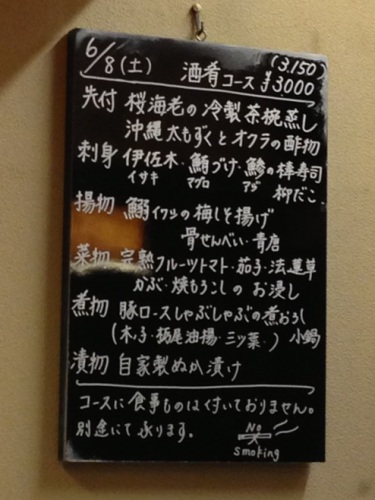 6/8(土) 酒肴コース (3.150) ¥3000
先付 桜海老の冷製茶椀蒸し
沖縄太もずくとオクラの酢物
刺身 伊佐木・鮪づけ・鯵の棒寿司
イサキ マグロ アジ 柳だこ
揚物 鰯イワシの梅しそ揚げ
骨せんべい・青唐
菜物 完熟フルーツトマト・茄子・法蓮草
かぶ・焼もろこしのお浸し
煮物 豚ロースしゃぶしゃぶの煮おろし
(木ノ子・栃尾油揚・三ッ葉・) 小鍋
漬物 自家製ぬか漬け
コースに食事ものは付いておりません。
別途にて承ります。
No
smoking